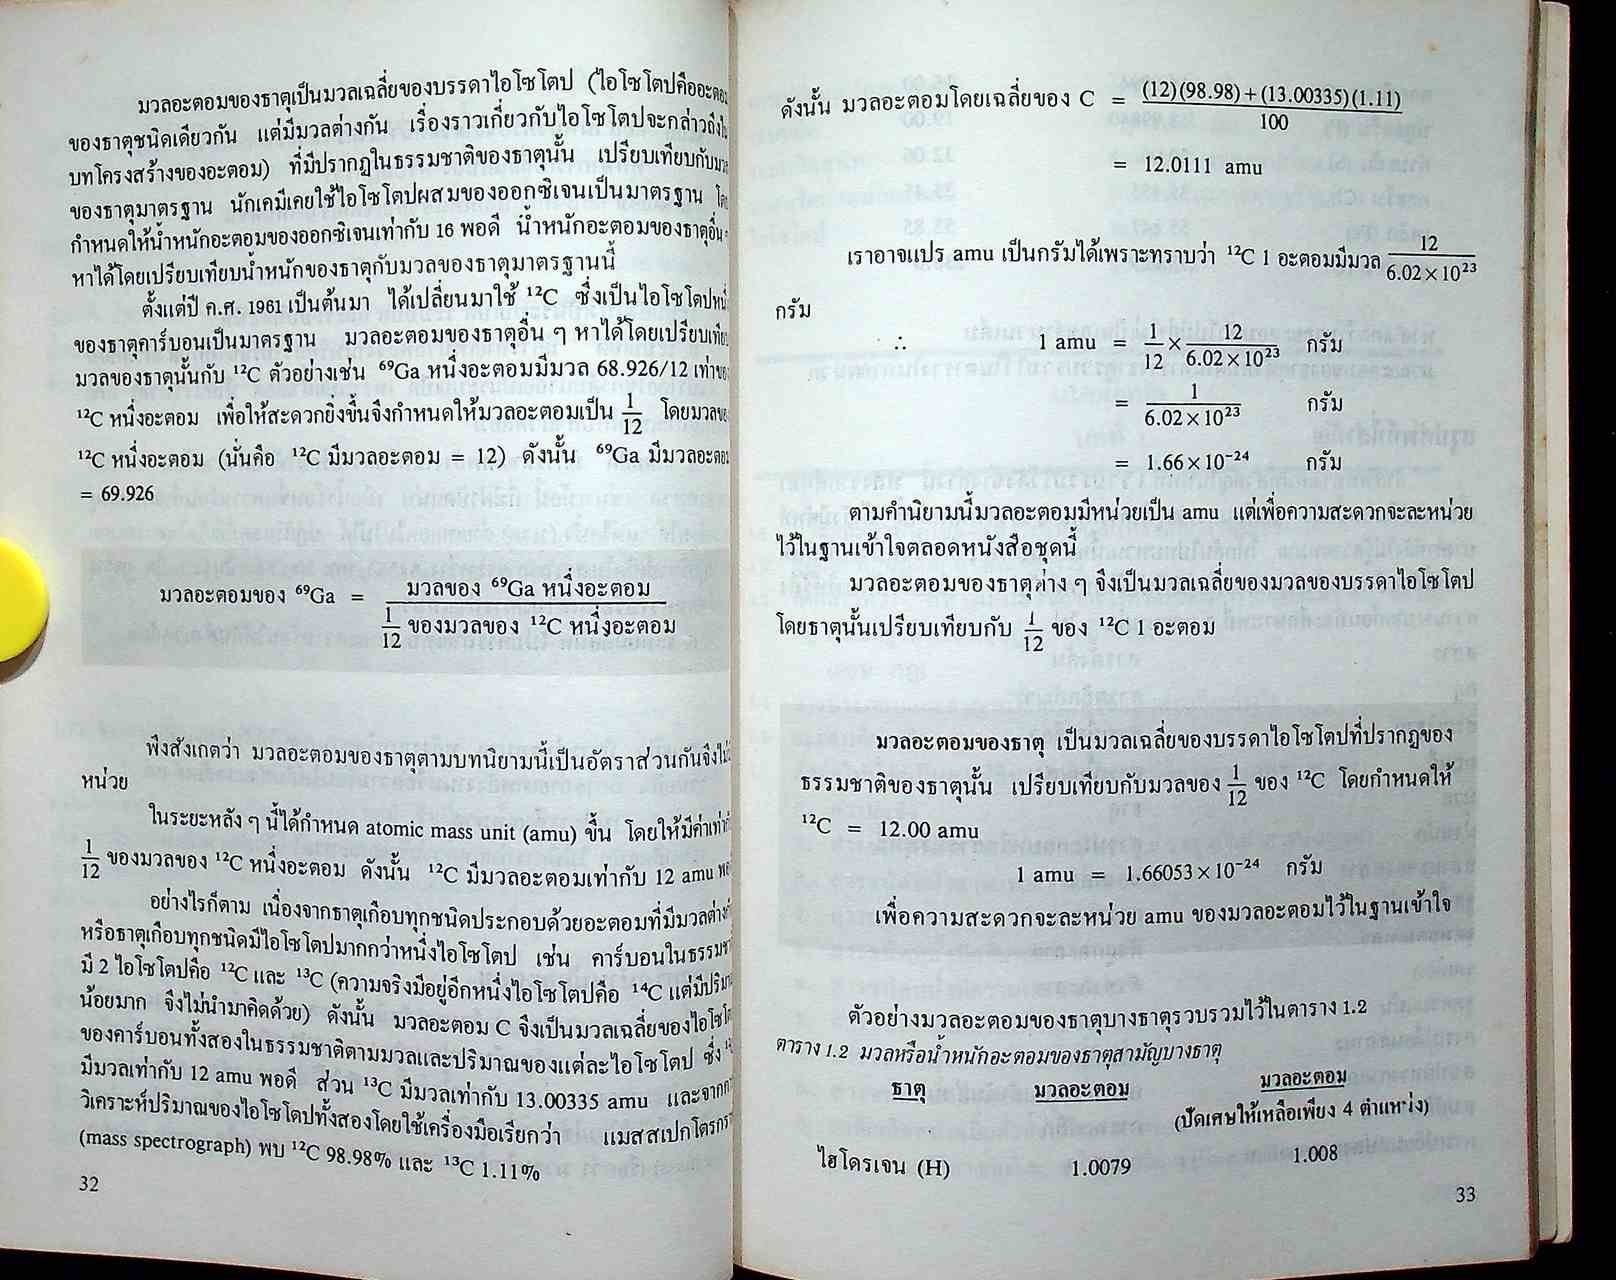 มวลอะตอมของธาตุเป็นมวลเฉลี่ยของบรรดาไอโซโตป (ไอโซโตปคืออะตอม
ของธาตุชนิดเดียวกัน แต่มีมวลต่างกัน เรื่องราวเกี่ยวกับไอโซโตปจะกล่าวถึงใน
บทโครงสร้างของอะตอม) ที่มีปรากฏในธรรมชาติของธาตุนั้น เปรียบเทียบกับมวล
ของธาตุมาตรฐาน นักเคมีเคยใช้ไอโซโตปผสมของออกซิเจนเป็นมาตรฐาน
กำหนดให้น้ำหนักอะตอมของออกซิเจนเท่ากับ 16 พอดี น้ำหนักอะตอมของธาตุอื่น
หาได้โดยเปรียบเทียบน้ำหนักของธาตุกับมวลของธาตุมาตรฐานนี้
ตั้งแต่ปี ค.ศ. 1961 เป็นต้นมา ได้เปลี่ยนมาใช้ ¹²C ซึ่งเป็นไอโซโตปหนึ่
ของธาตุคาร์บอนเป็นมาตรฐาน มวลอะตอมของธาตุอื่น ๆ หาได้โดยเปรียบเทีย
มวลของธาตุนั้นกับ ¹²C ตัวอย่างเช่น ⁶⁹Ga หนึ่งอะตอมมีมวล 68.926/12 เท่าของ
¹²C หนึ่งอะตอม เพื่อให้สะดวกยิ่งขึ้นจึงกำหนดให้มวลอะตอมเป็น 1/12 โดยมวลของ
¹²C หนึ่งอะตอม (นั่นคือ ¹²C มีมวลอะตอม = 12) ดังนั้น ⁶⁹Ga มีมวลอะตอม
= 69.926
มวลอะตอมของ ⁶⁹Ga = มวลของ ⁶⁹Ga หนึ่งอะตอม
1/12 ของมวลของ ¹²C หนึ่งอะตอม
พึงสังเกตว่า มวลอะตอมของธาตุตามบทนิยามนี้เป็นอัตราส่วนกันจึงไม่
หน่วย
ในระยะหลัง ๆ นี้ได้กำหนด atomic mass unit (amu) ขึ้น โดยให้มีค่าเท่า
1/12 ของมวลของ ¹²C หนึ่งอะตอม ดังนั้น ¹²C มีมวลอะตอมเท่ากับ 12 amu พอ
อย่างไรก็ตาม เนื่องจากธาตุเกือบทุกชนิดประกอบด้วยอะตอมที่มีมวลต่าง
หรือธาตุเกือบทุกชนิดมีไอโซโตปมากกว่าหนึ่งไอโซโตป เช่น คาร์บอนในธรรมชา
มี 2 ไอโซโตปคือ ¹²C และ ¹³C (ความจริงมีอยู่อีกหนึ่งไอโซโตปคือ ¹⁴C แต่มีปริมา
น้อยมาก จึงไม่นำมาคิดด้วย) ดังนั้น มวลอะตอม C จึงเป็นมวลเฉลี่ยของไอโซโต
ของคาร์บอนทั้งสองในธรรมชาติตามมวลและปริมาณของแต่ละไอโซโตป ซึ่ง ¹²
มีมวลเท่ากับ 12 amu พอดี ส่วน ¹³C มีมวลเท่ากับ 13.00335 amu และจากก
วิเคราะห์ปริมาณของไอโซโตปทั้งสองโดยใช้เครื่องมือเรียกว่า แมสสเปกโตรกร
(mass spectrograph) พบ ¹²C 98.98% และ ¹³C 1.11%
32
ดังนั้น มวลอะตอมโดยเฉลี่ยของ C = (12)(98.98)+(13.00335)(1.11)
100
= 12.0111 amu
เราอาจแปร amu เป็นกรัมได้เพราะทราบว่า ¹²C 1 อะตอมมีมวล 12/6.02×10²³
กรัม
∴ 1 amu = 1/12 × 12/6.02×10²³ กรัม
= 1/6.02×10²³ กรัม
= 1.66×10⁻²⁴ กรัม
ตามคำนิยามนี้มวลอะตอมมีหน่วยเป็น amu แต่เพื่อความสะดวกจะละหน่วย
ไว้ในฐานเข้าใจตลอดหนังสือชุดนี้
มวลอะตอมของธาตุต่าง ๆ จึงเป็นมวลเฉลี่ยของมวลของบรรดาไอโซโตป
โดยธาตุนั้นเปรียบเทียบกับ 1/12 ของ ¹²C 1 อะตอม
มวลอะตอมของธาตุ เป็นมวลเฉลี่ยของบรรดาไอโซโตปที่ปรากฏของ
ธรรมชาติของธาตุนั้น เปรียบเทียบกับมวลของ 1/12 ของ ¹²C โดยกำหนดให้
¹²C = 12.00 amu
1 amu = 1.66053×10⁻²⁴ กรัม
เพื่อความสะดวกจะละหน่วย amu ของมวลอะตอมไว้ในฐานเข้าใจ
ตัวอย่างมวลอะตอมของธาตุบางธาตุรวบรวมไว้ในตาราง 1.2
ตาราง 1.2 มวลหรือน้ำหนักอะตอมของธาตุสามัญบางธาตุ
ธาตุ มวลอะตอม มวลอะตอม
(ปัดเศษให้เหลือเพียง 4 ตำแหน่ง)
ไฮโดรเจน (H) 1.0079 1.008
33